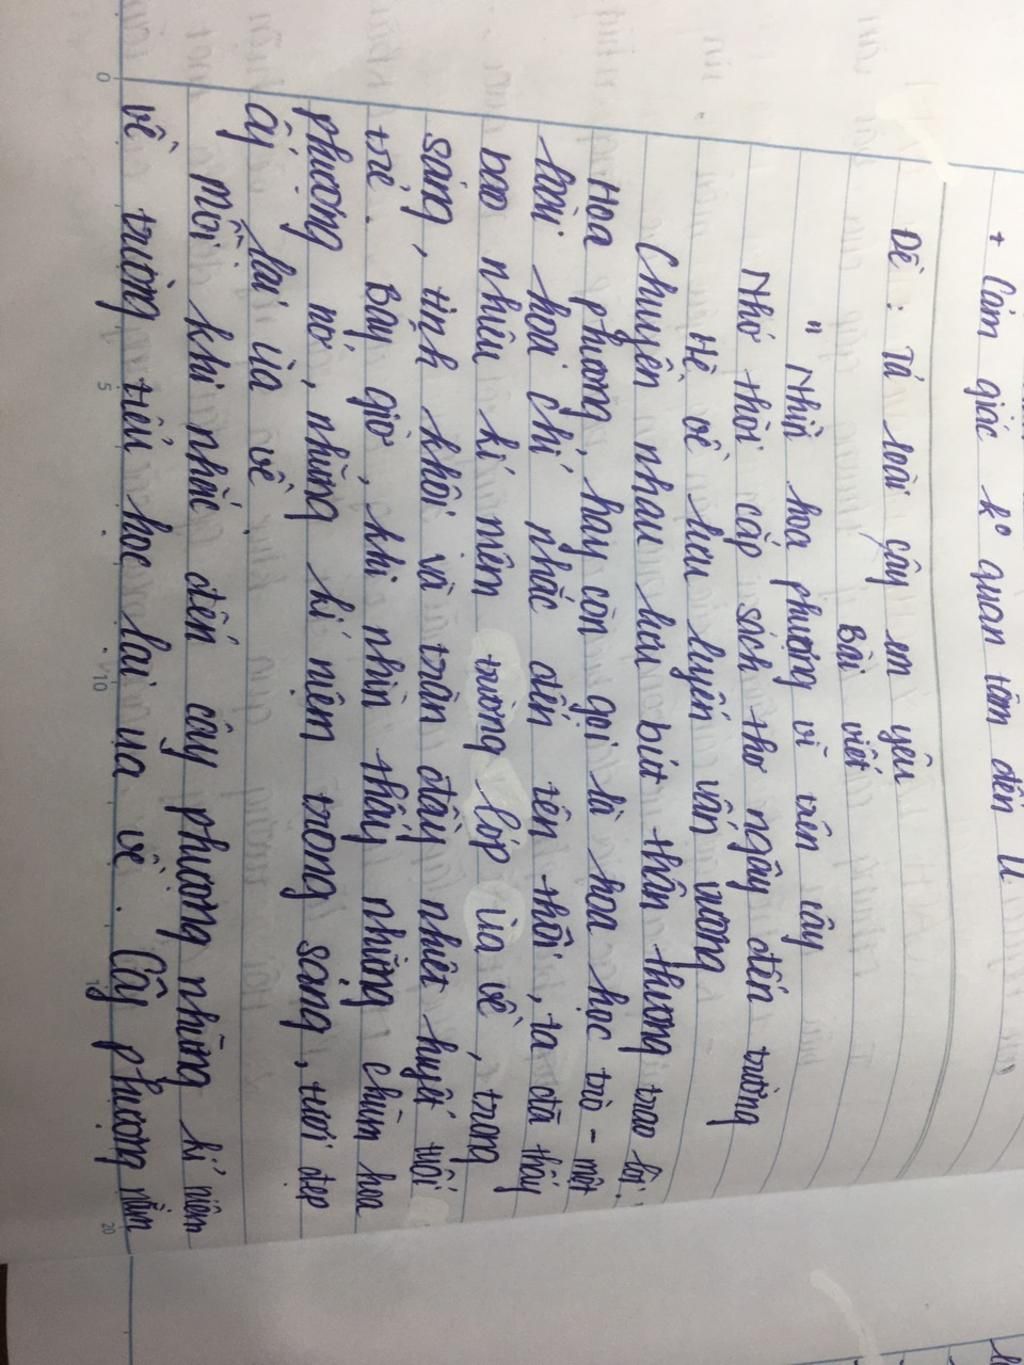 + Cảm giác ko quan tâm đến
Đề : Tả loài cây em yêu
Bài viết
" Nhìn hoa phượng vĩ trên cây
Nhớ thời cắp sách thơ ngây đến trường
Hè về lưu luyến vấn vương
Chuyền nhau lưu bút thân thương trao lời.
Hoa phượng, hay còn gọi là hoa học trò - một
loài hoa chỉ nhắc đến tên thôi, ta đã thấy
bao nhiêu kỉ niệm trường lớp ùa về, trong
sáng, tinh khôi và tràn đầy nhiệt huyết tuổi
trẻ. Bây giờ, khi nhìn thấy những chùm hoa
phượng nở, những kỉ niệm trong sáng, tươi đẹp
ấy lại ùa về.
Mỗi khi nhắc đến cây phượng những kỉ niệm
về trường tiểu học lại ùa về. Cây phượng nằm